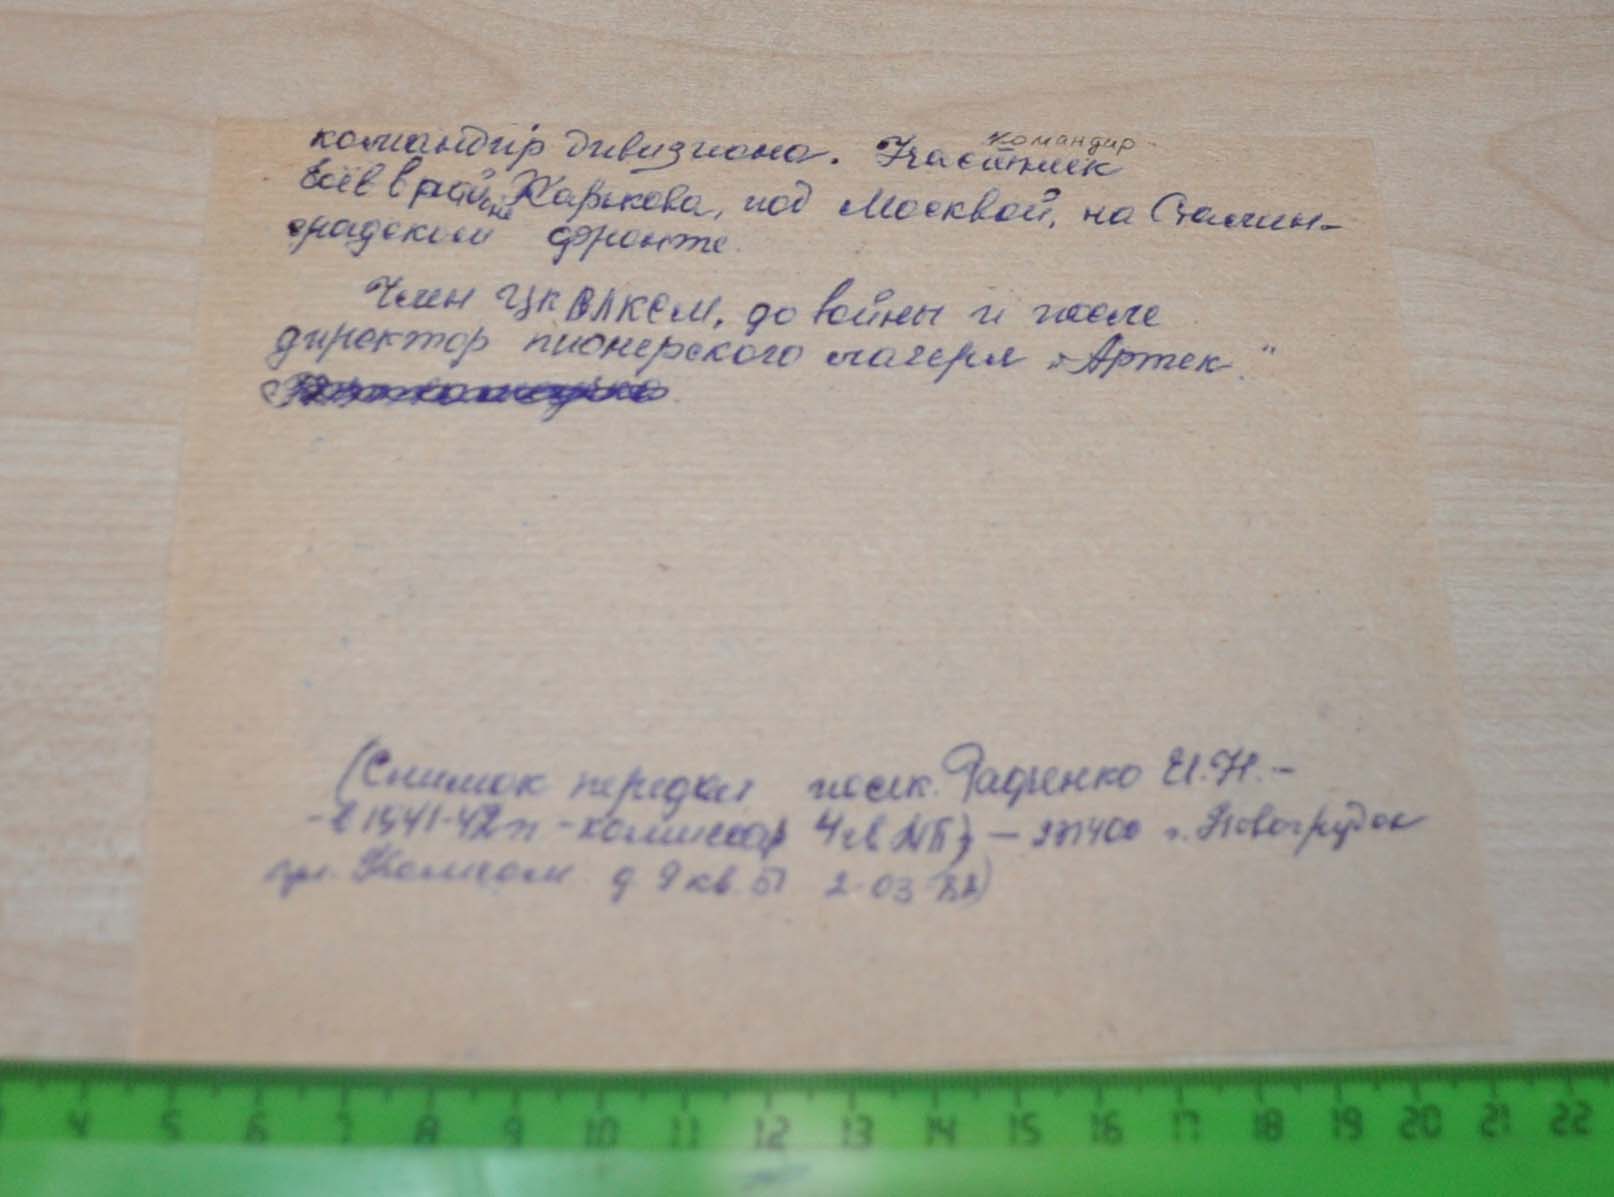 командир
командир дивизиона. Участник
боёв в районе Харькова, под Москвой, на Сталин-
градском фронте.
Член ЦК ВЛКСМ, до войны и после
директор пионерского лагеря "Артек".
(Снимок передал полк. Радченко И.Н. -
- в 1941-42 гг - комиссар 4 гв МП) - 231400 г. Новогрудок
ул. Комсом. д. 9 кв. 51 2-03-82)
4 5 6 7 8 9 10 11 12 13 14 15 16 17 18 19 20 21 22